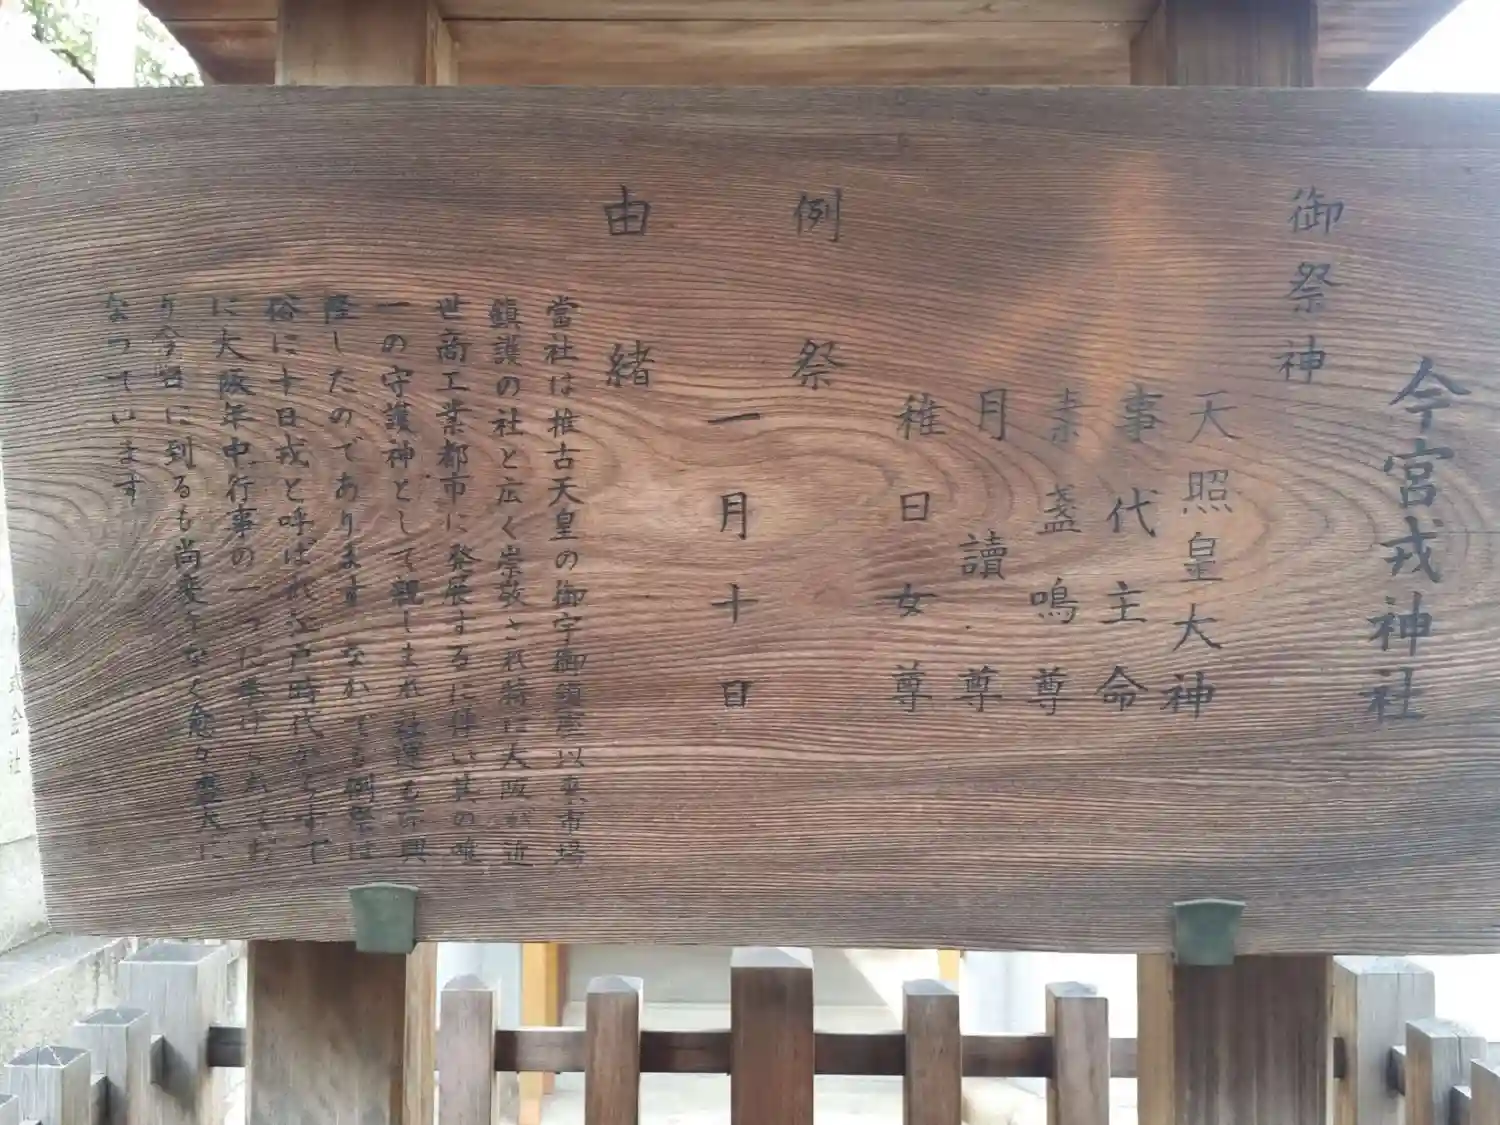 今宮戎神社
御祭神
天照皇大神
事代主命
素盞鳴尊
月讀尊
稚日女尊
例祭
一月十日
由緒
當社は推古天皇の御宇御鎮座以来市場
鎮護の社と広く崇敬され特に大阪が近
世商工業都市に発展するに伴い其の唯
一の守護神として親しまれ社運も亦興
隆したのであります なかでも例祭は
俗に十日戎と呼ばれ江戸時代からすで
に大阪年中行事の一つに挙げられてお
り今日に到るも尚変りなく愈々盛大に
なっています